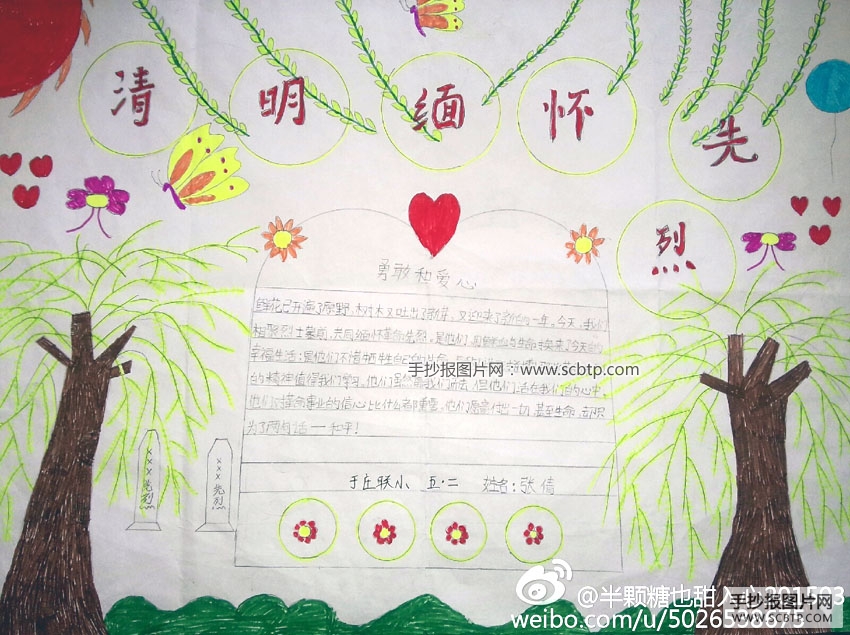 清 明 缅 怀 先 烈
勇敢和爱心
鲜花已开遍了原野,树木又吐出了新芽,又迎来了新的一年。今天,我们
相聚烈士墓前,共同缅怀革命先烈。是他们,用鲜血与生命换来了今天的
幸福生活;是他们不惜牺牲自己的生命
手抄报图片网:www.scbtp.com
的精神值得我们学习。他们虽然离我们而去,但他们活在我们的心中。
他们对革命事业的信心比什么都重要,他们愿意付出一切,甚至生命,却只
为了两句话——和平!
于庄联小 五·二 姓名:张倩
×××先烈
×××先烈
@半颗糖也甜入心
weibo.com/u/5026
手抄报图片网
WWW.SCBTP.COM